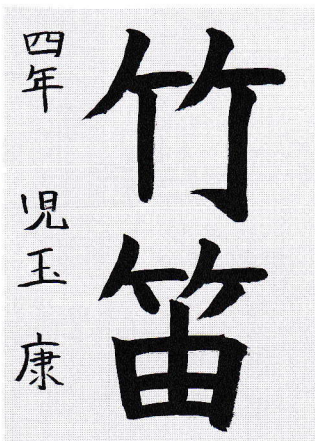 竹笛
四年 児玉 康